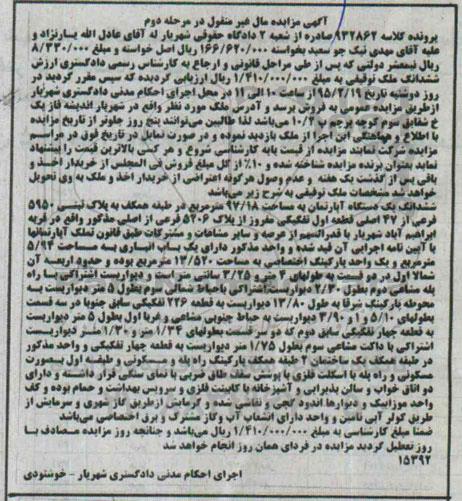 آگهی مزایده مال غیر منقول در مرحله دوم
پرونده کلاسه ۹۳۲۸۶۲ صادره از شعبه ۲ دادگاه حقوقی شهریار له آقای عادل الله یارنژاد و
علیه آقای مهدی نیک جو سعید بخواسته ۱۶۶/۶۲۰/۰۰۰ ریال اصل خواسته و مبلغ ۸/۳۳۰/۰۰۰
ریال نیمعشر دولتی که پس از طی مراحل قانونی و ارجاع به کارشناس رسمی دادگستری ارزش
ششدانگ ملک توقیفی به مبلغ ۱/۴۱۰/۰۰۰/۰۰۰ ریال ارزیابی گردیده که سپس مقرر گردید در
روز دوشنبه تاریخ ۹۵/۲/۱۹ از ساعت ۱۰ الی ۱۲ در محل اجرای احکام مدنی دادگستری شهریار
ازطریق مزایده عمومی به فروش برسد و آدرس ملک مورد نظر واقع در شهریار اندیشه فاز یک
خ شقایق سوم کوچه پرچم پ ۱۰/۲ می باشد لذا طالبین می‌توانند پنج روز جلوتر از تاریخ مزایده
با اطلاع و هماهنگی این اجرا از ملک بازدید نموده و در صورت تمایل در تاریخ فوق در مراسم
مزایده شرکت نمایند مزایده از قیمت پایه کارشناسی شروع و هر کس بالاترین قیمت را پیشنهاد
نماید بعنوان برنده مزایده شناخته شده و ۱۰٪ از کل مبلغ فروش فی المجلس از خریدار اخذ و
باقی پس از گذشت یک هفته و عدم وصول هرگونه اعتراضی از خریدار اخذ و ملک به وی تحویل
خواهد شد مشخصات ملک توقیفی به شرح زیر می‌باشد
ششدانگ یک دستگاه آپارتمان به مساحت ۹۷/۱۸ مترمربع در طبقه همکف به پلاک ثبتی ۵۹۵۰
فرعی از ۴۲ اصلی قطعه اول تفکیکی مفروز از پلاک ۵۲۰۶ فرعی از اصلی مذکور واقع در قریه
ابراهیم آباد شهریار با قدرالسهم از عرصه و سایر مشاعات و مشترکات طبق قانون تملک آپارتمانها
با آیین نامه اجرایی آن قید شده و واحد مذکور دارای یک باب انباری به مساحت ۵/۹۴
مترمربع و یک واحد پارکینگ اختصاصی به مساحت ۱۳/۵۲۰ مترمربع بوده و حدود اربعه آن
شمالا اول در دو قسمت به طولهای ۴ متر و ۳/۲۵ سانتی متر است و دیواریست اشتراکی با راه
پله مشاعی دوم بطول ۲/۳۰ دیواریست اشتراکی باحیاط شمالی سوم بطول ۵ متر دیواریست به
محوطه پارکینگ شرقا به طول ۱۳/۸۰ دیواریست به قطعه ۲۲۶ تفکیکی سابق جنوبا در سه قسمت
بطولهای ۵/۱۰ و ۱ و ۳/۹۰ دیواریست به حیاط جنوبی مشاعی و غربا اول بطول ۵ متر دیواریست
به قطعه چهار تفکیکی سابق دوم که در سه قسمت بطولهای ۱/۳۴ متر و ۱/۳۰ متر دیواریست
اشتراکی با داکت مشاعی سوم بطول ۱/۷۵ متر دیواریست به قطعه چهار تفکیکی و واحد مذکور
در طبقه همکف یک ساختمان ۲ طبقه همکف پارکینگ راه پله و مسکونی و طبقه اول بصورت
مسکونی و راه پله با اسکلت فلزی با پوشش سقف طاق ضربی با نمای سنگی قرار داشته و دارای
دو اتاق خواب و سالن پذیرایی و آشپزخانه با کابینت فلزی و سرویس بهداشت و حمام بوده و کف
واحد موزائیک و دیوارها اندود گچی و نقاشی شده و گرمایش ازطریق گاز شهری و سرمایش از
طریق کولر آبی تامین و واحد دارای انشعاب آب وگاز مشترک و برق اختصاصی می‌باشد
ضمنا مبلغ کارشناسی به مبلغ ۱/۴۱۰/۰۰۰/۰۰۰ ریال می‌باشد و چنانچه روز مزایده مصادف با
روز تعطیل گردید مزایده در فردای همان روز انجام خواهد شد
۱۵۳۹۲
اجرای احکام مدنی دادگستری شهریار - خوشنودی